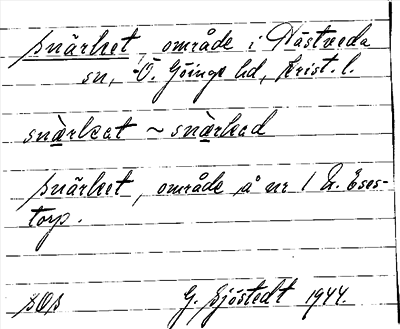 Snärket, område i Hästveda
sn, Ö. Göinge hd, Krist. l.
snærkat ~ snærkad
Snärket, område å nr 1 L. Eses-
torp.
SOS
G. Sjöstedt 1944.